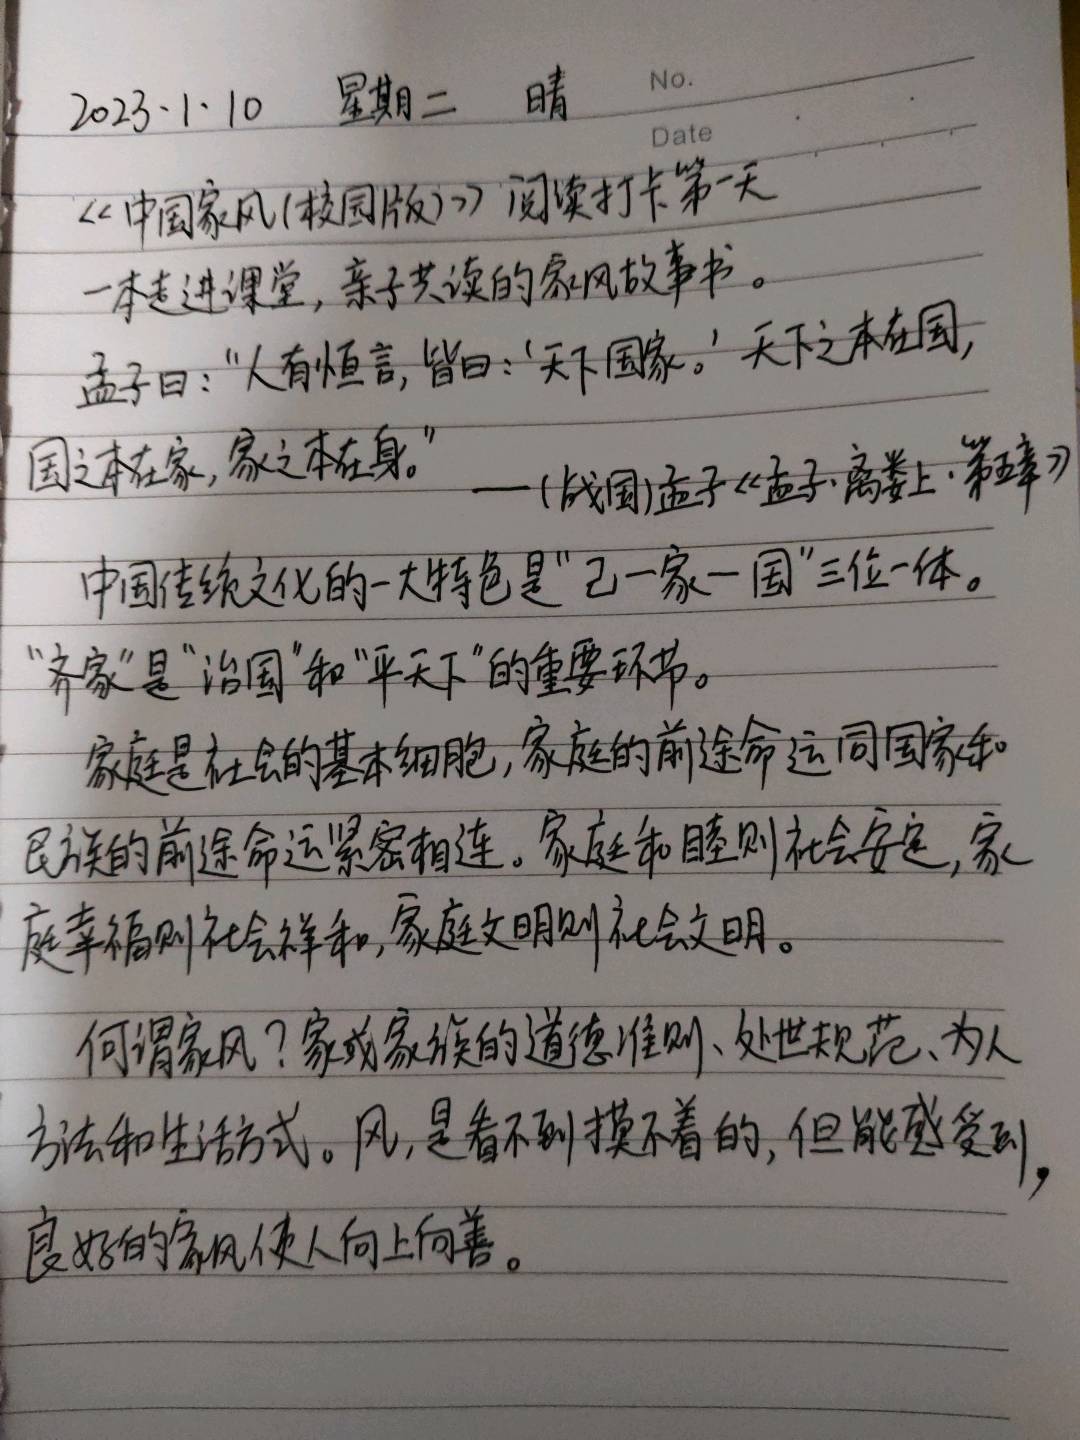 No.
2023·1·10 星期二 晴
Date
《中国家风(校园版)》阅读打卡第一天
一本走进课堂,亲子共读的家风故事书。
孟子曰:“人有恒言,皆曰:‘天下国家。’天下之本在国,
国之本在家,家之本在身。”
——(战国)孟子《孟子·离娄上·第五章》
中国传统文化的一大特色是“己一家一国”三位一体。
“齐家”是“治国”和“平天下”的重要环节。
家庭是社会的基本细胞,家庭的前途命运同国家和
民族的前途命运紧密相连。家庭和睦则社会安定,家
庭幸福则社会祥和,家庭文明则社会文明。
何谓家风?家或家族的道德准则、处世规范、为人
方法和生活方式。风,是看不到摸不着的,但能感受到,
良好的家风使人向上向善。